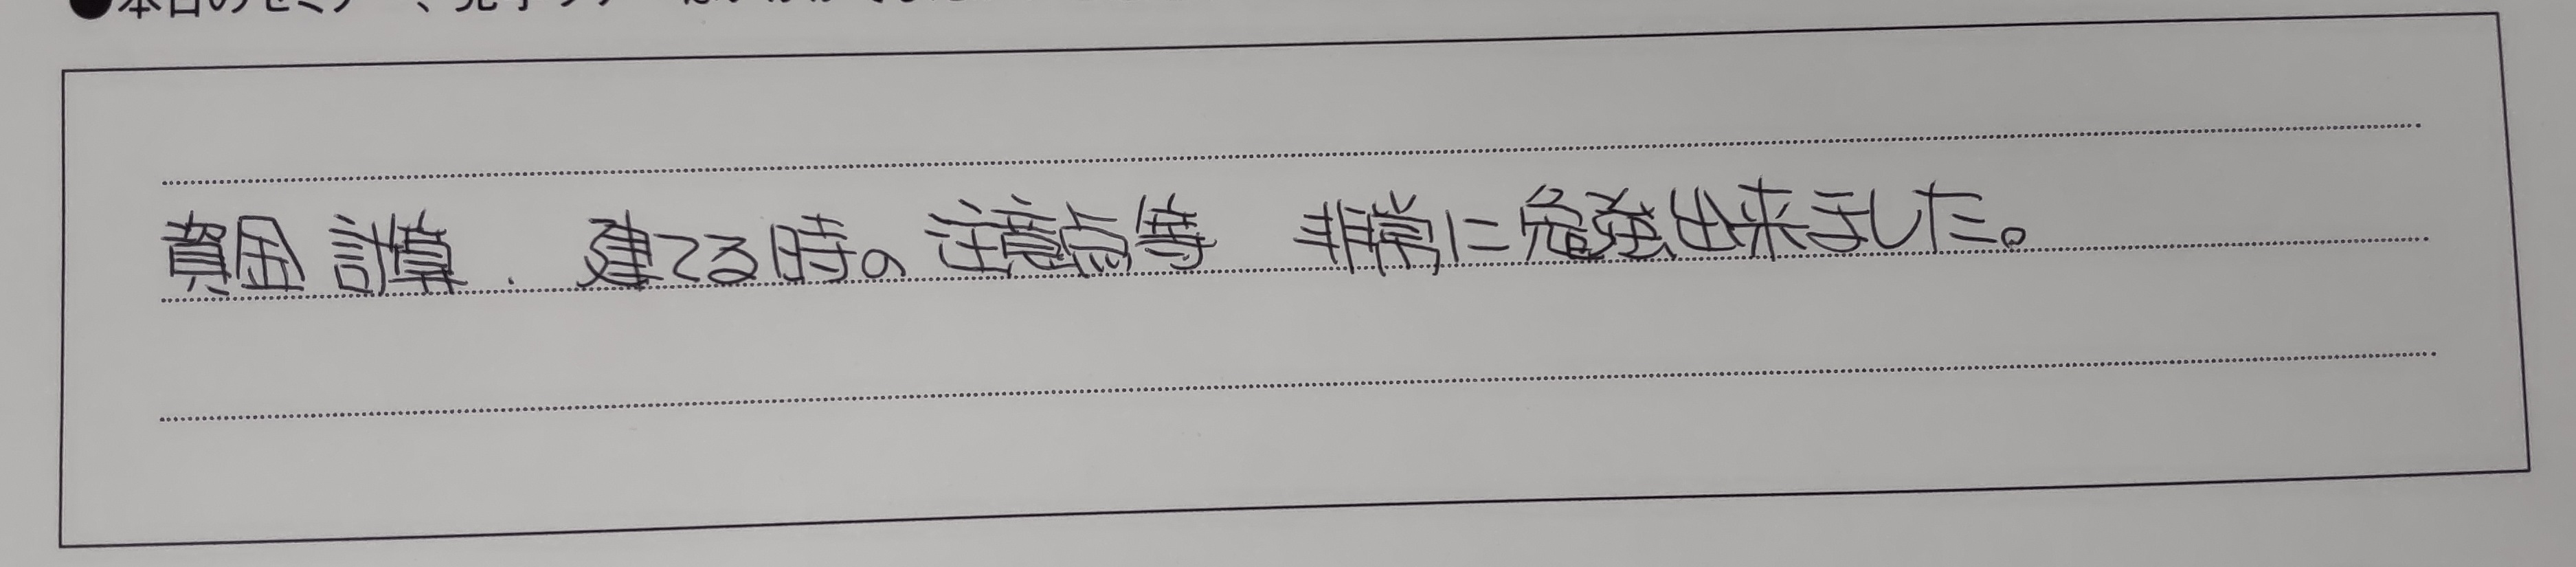 ●本日のセミナー、見学ツアーはいかがでしたか
資金計算．建てる時の注意点等 非常に勉強出来ました。